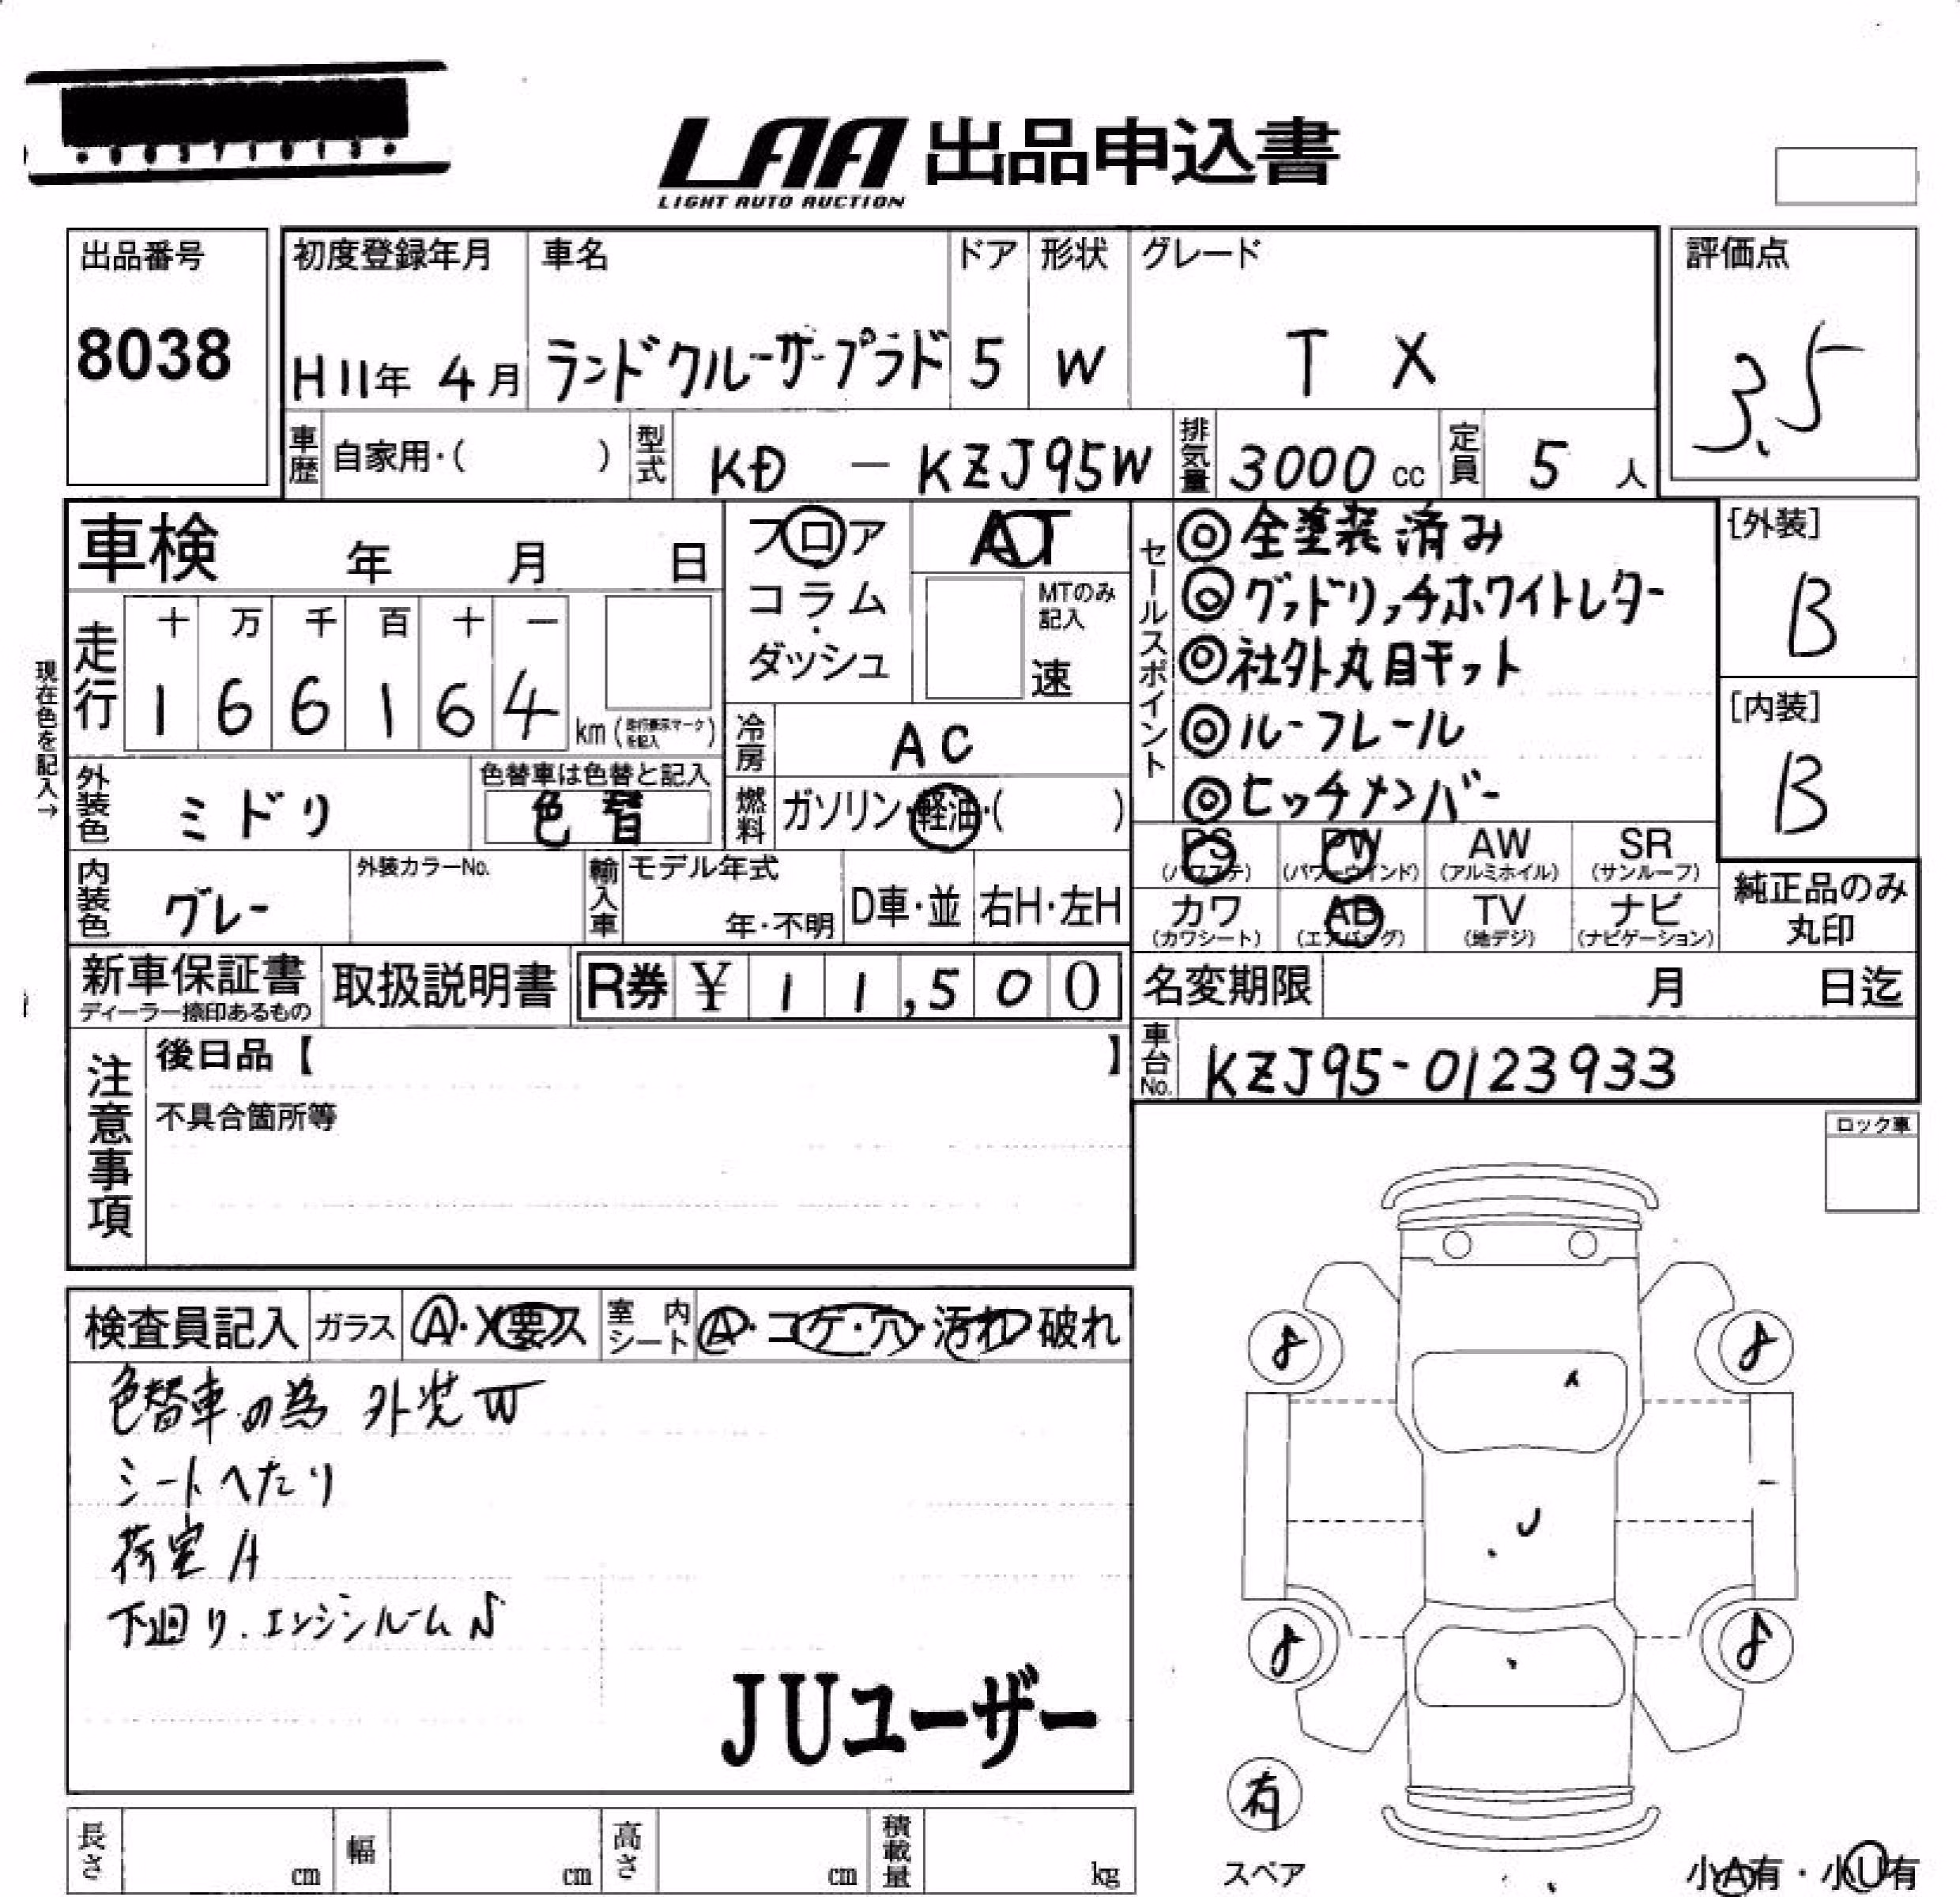 LAA 出品申込書
LIGHT AUTO AUCTION
出品番号
8038
初度登録年月
H11年 4月
車名
ランドクルーザープラド
ドア
5
形状
W
グレード
TX
評価点
3.5
車歴 自家用・( )
型式 KD - KZJ95W
排気量 3000 cc
定員 5 人
車検 年 月 日
フロア
コラム・
ダッシュ
AT
MTのみ記入
速
現在色を記入→
走行
十 万 千 百 十 一
1 6 6 1 6 4 km
冷房 AC
外装色 ミドリ
色替車は色替と記入
色替
燃料 ガソリン・軽油・( )
内装色 グレー
外装カラーNo.
輸入車
モデル年式
年・不明
D車・並
右H・左H
セールスポイント
◎全塗装済み
◎グッドリッチホワイトレター
◎社外丸目キット
◎ルーフレール
◎ヒッチメンバー
[外装]
B
[内装]
B
PS (パワステ)
PW (パワーウインド)
AW (アルミホイル)
SR (サンルーフ)
カワ (カワシート)
AB (エアバッグ)
TV (地デジ)
ナビ (ナビゲーション)
純正品のみ
丸印
新車保証書
ディーラー捺印あるもの
取扱説明書
R券 ¥ 11,500
名変期限 月 日迄
車台No. KZJ95-0123933
注意事項
後日品【 】
不具合箇所等
ロック車
検査員記入
ガラス A・X要ス
室内シート A・コゲ・穴・汚れ 破れ
色替車の為 外装W
シートへたり
荷室A
下廻り.エンジンルームS
JUユーザー
8
8
8
8
有
スペア
長さ cm
幅 cm
高さ cm
積載量 kg
小A有・小U有